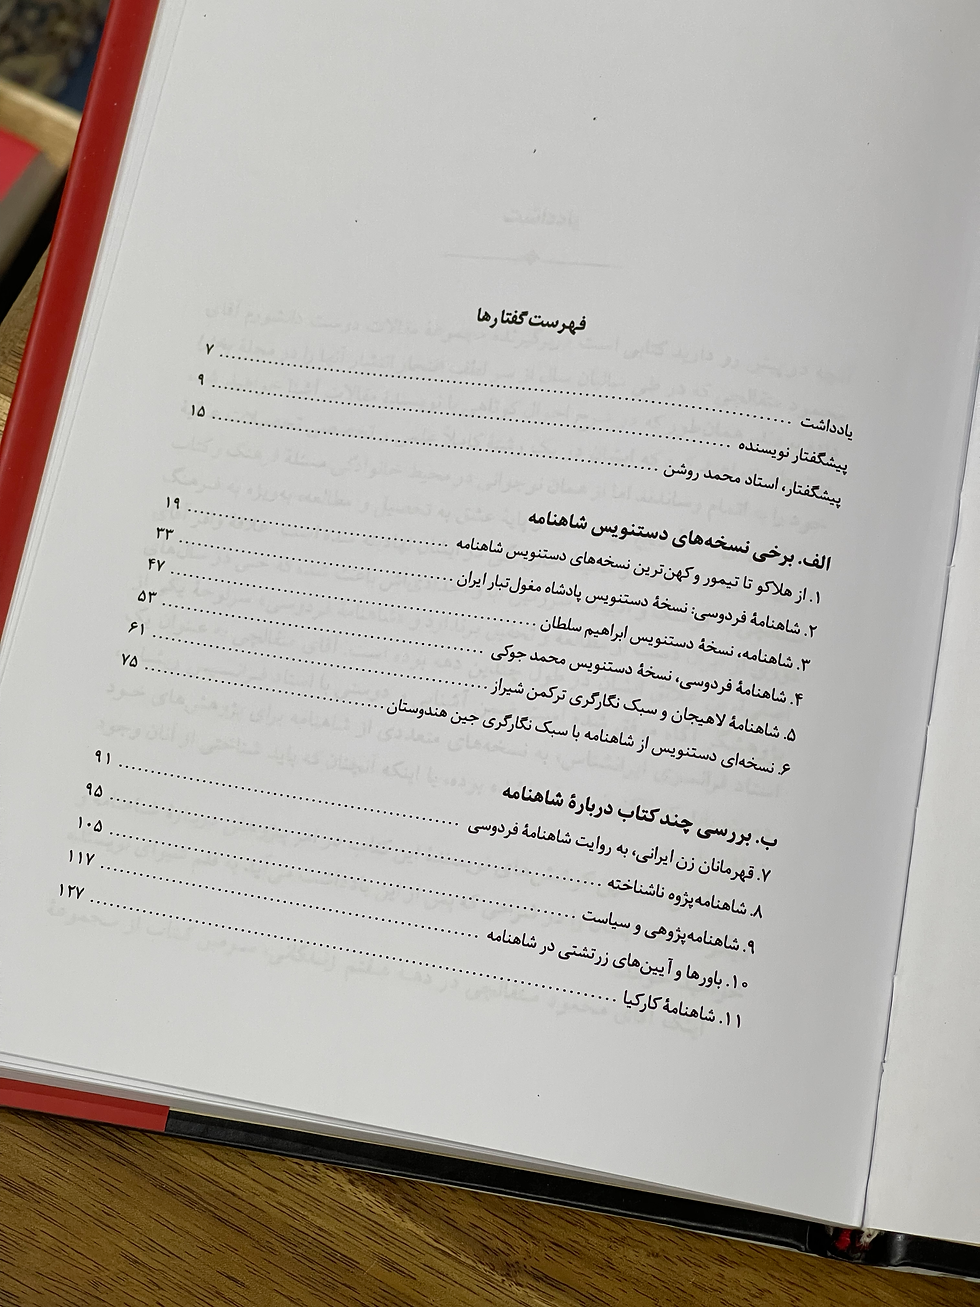 فهرست گفتارها
یادداشت ........ ۷
پیشگفتار نویسنده ........ ۹
پیشگفتار، استاد محمد روشن ........ ۱۵
الف. برخی نسخه‌های دستنویس شاهنامه
۱. از هلاکو تا تیمور و کهن‌ترین نسخه‌های دستنویس شاهنامه ........ ۱۹
۲. شاهنامهٔ فردوسی: نسخهٔ دستنویس پادشاه مغول‌تبار ایران ........ ۳۳
۳. شاهنامه، نسخهٔ دستنویس ابراهیم سلطان ........ ۴۷
۴. شاهنامهٔ فردوسی، نسخهٔ دستنویس محمد جوکی ........ ۵۳
۵. شاهنامهٔ لاهیجان و سبک نگارگری ترکمن شیراز ........ ۶۱
۶. نسخه‌ای دستنویس از شاهنامه با سبک نگارگری جین هندوستان ........ ۷۵
ب. بررسی چند کتاب دربارهٔ شاهنامه
۷. قهرمانان زن ایرانی، به روایت شاهنامهٔ فردوسی ........ ۹۱
۸. شاهنامه‌پژوه ناشناخته ........ ۹۵
۹. شاهنامه‌پژوهی و سیاست ........ ۱۰۵
۱۰. باورها و آیین‌های زرتشتی در شاهنامه ........ ۱۱۷
۱۱. شاهنامهٔ کارکیا ........ ۱۲۷